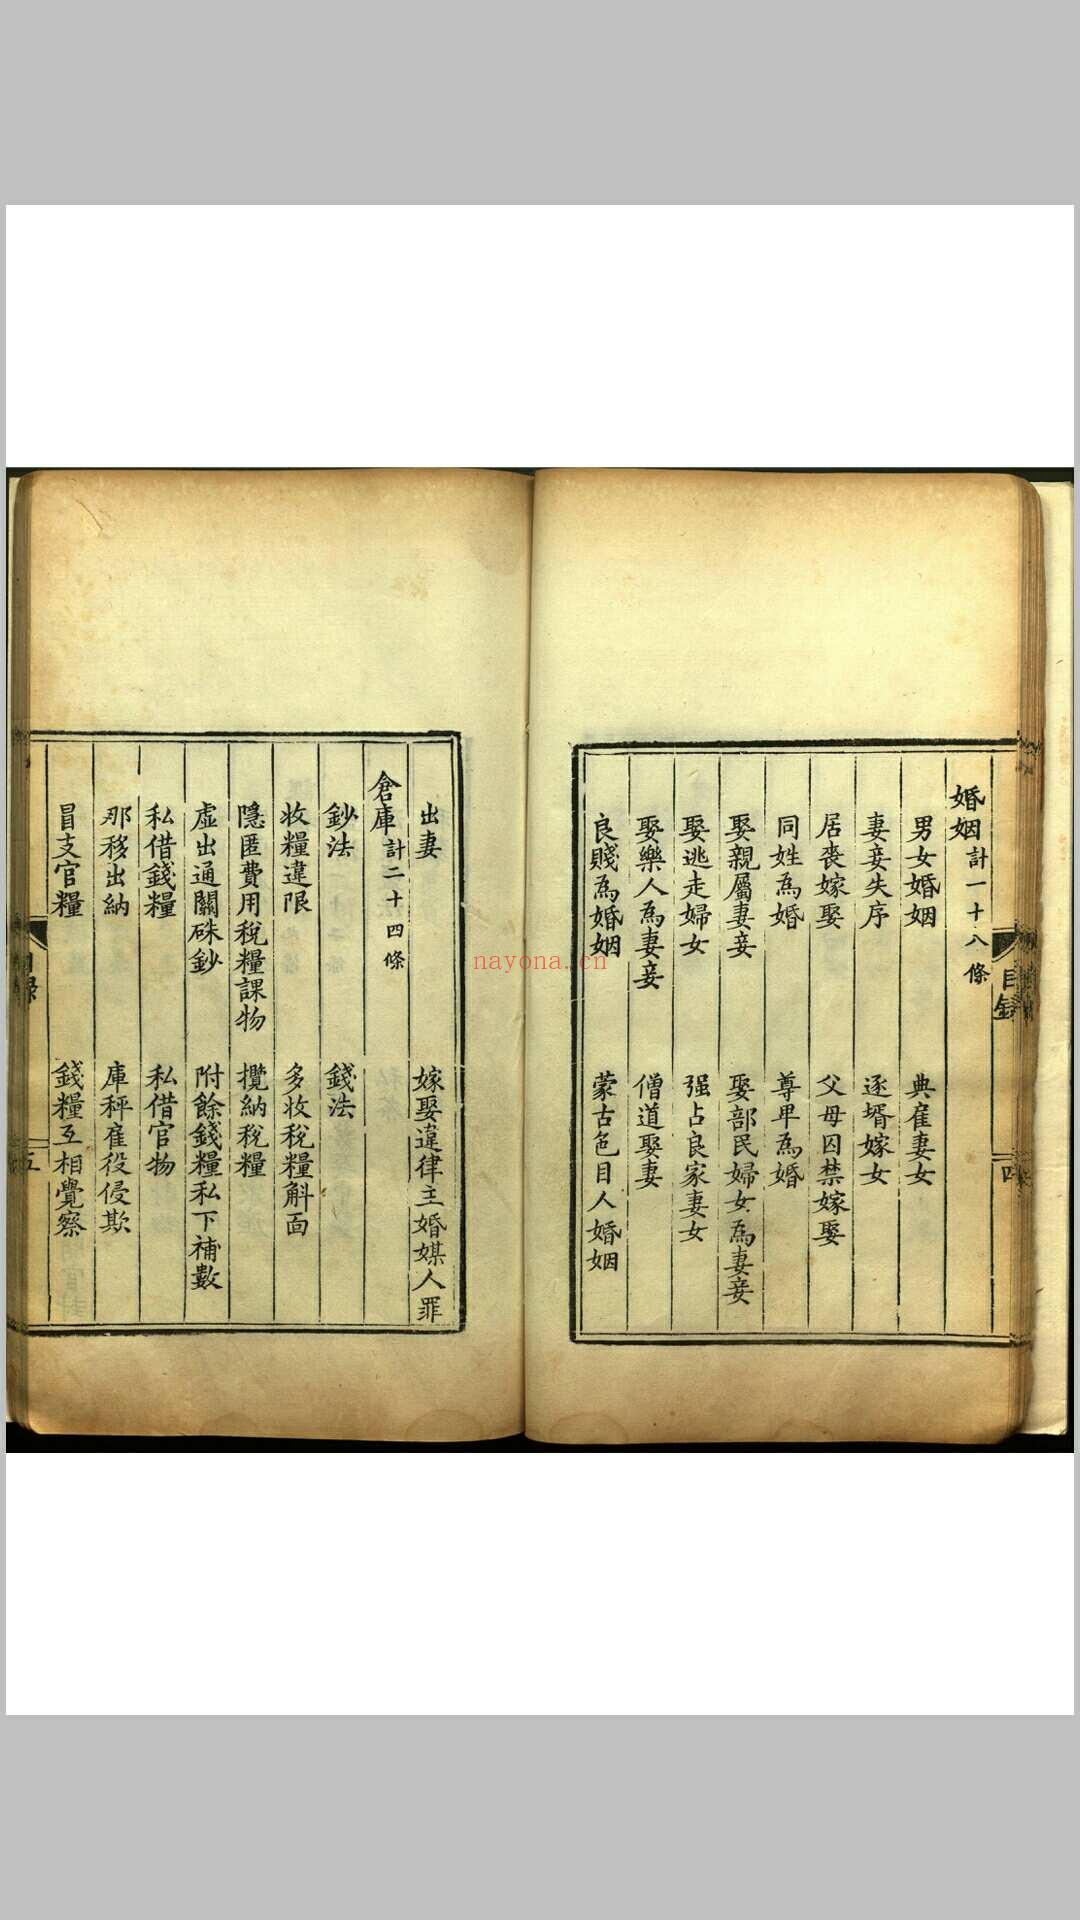 婚姻計一十八條
男女婚姻 典雇妻女
妻妾失序 逐壻嫁女
居喪嫁娶 父母囚禁嫁娶
同姓爲婚 尊卑爲婚
娶親屬妻妾 娶部民婦女爲妻妾
娶逃走婦女 强占良家妻女
娶樂人爲妻妾 僧道娶妻
良賤爲婚姻 蒙古色目人婚姻
目錄
四
出妻 嫁娶違律主婚媒人罪
倉庫計二十四條
鈔法 錢法
收糧違限 多收稅糧斛面
隱匿費用稅糧課物 攬納稅糧
虛出通關硃鈔 附餘錢糧私下補數
私借錢糧 私借官物
那移出納 庫秤雇役侵欺
冒支官糧 錢糧互相覺察
目錄
五
nayona.cn